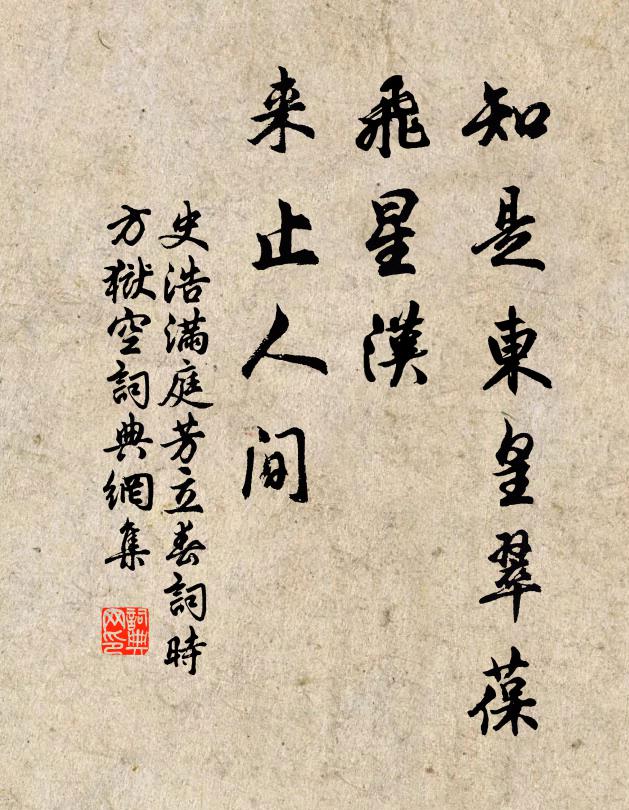 知是東皇翠葆
飛星漢
来止人间
史浩满庭芳立春詞時
方獄空詞典網集
詞典
网印